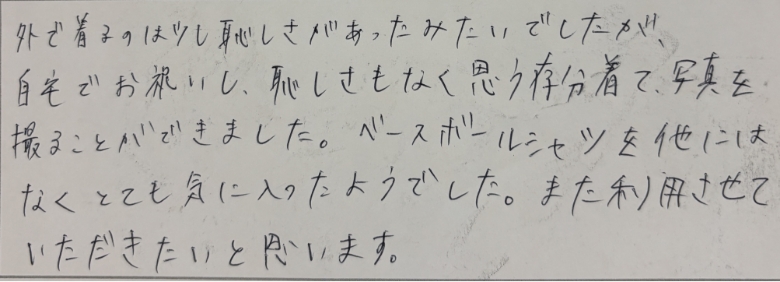 外で着るのは少し恥しさがあったみたいでしたが、
自宅でお祝いし、恥しさもなく思う存分着て、写真を
撮ることができました。ベースボールシャツを他には
なくとても気に入ったようでした。また利用させて
いただきたいと思います。